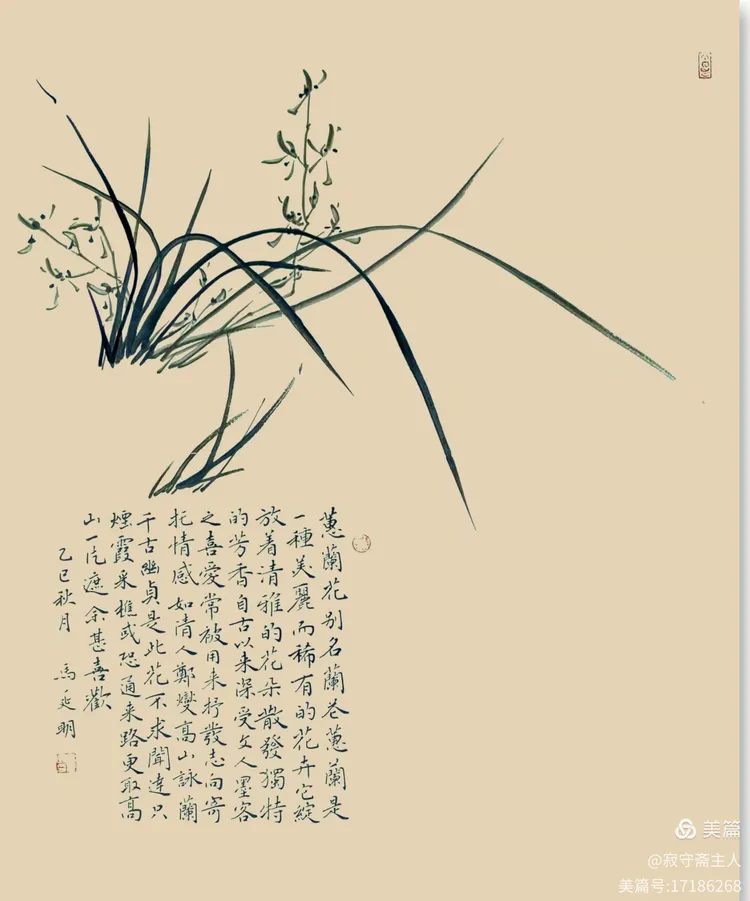 蕙蘭花别名蘭苍蕙蘭是
一種美麗而稀有的花卉它綻
放着清雅的花朵散發獨特
的芳香自古以来深受文人墨客
之喜愛常被用来抒發志向寄
托情感如清人鄭燮高山詠蘭
千古幽貞是此花不求聞達只
煙霞采樵或恐通来路更取高
山一片遮余甚喜歡
乙巳秋月 馬延明
美篇
@寂守斋主人
美篇号:17186268